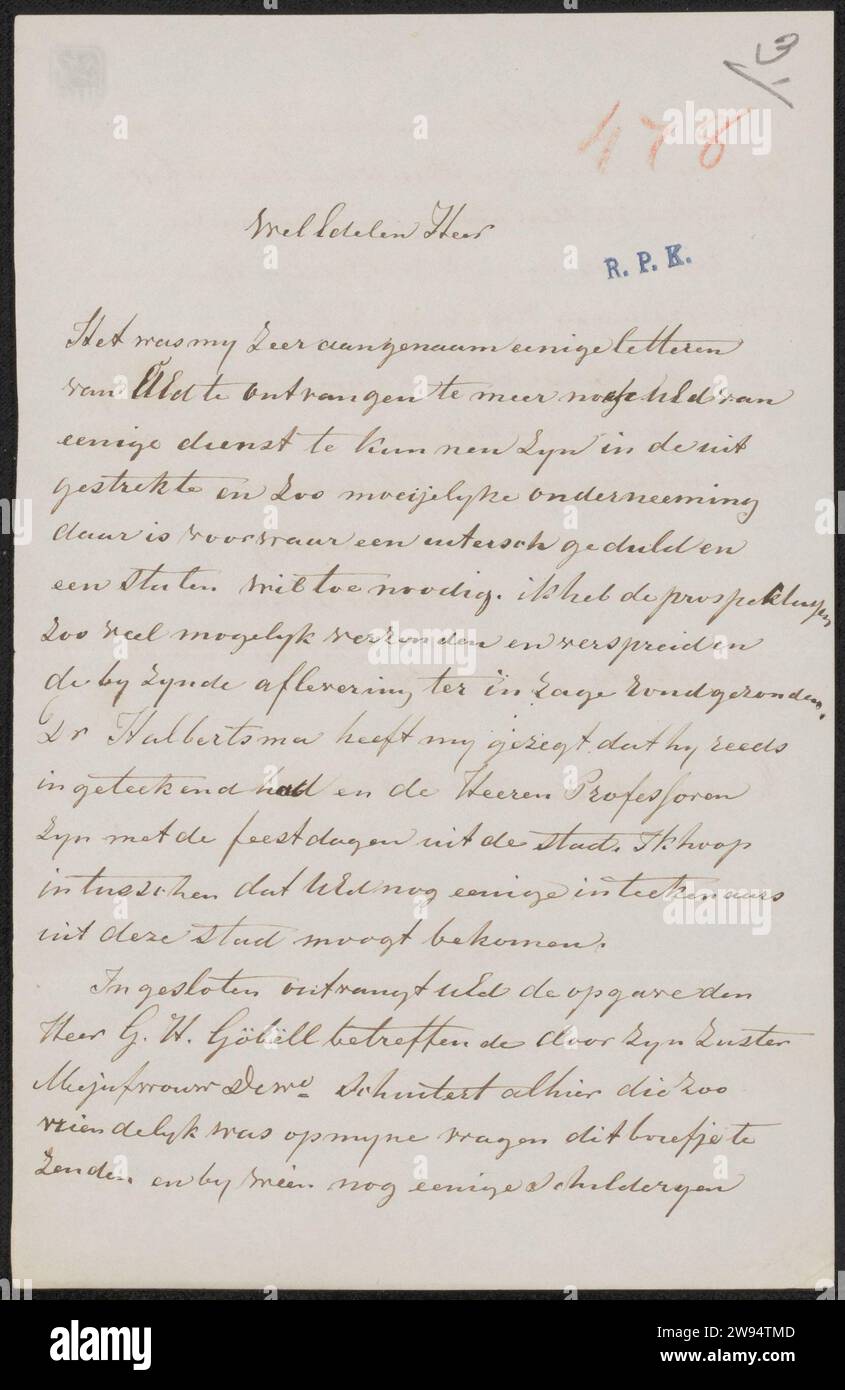 13
478
WelEdelen Heer
R. P. K.
Het was my zeer aangenaam eenige letteren
van UEd te ontvangen te meer UEd van
eenige dienst te kunnen zyn in de uit
gestrekte en zoo moeijelyke onderneeming
daar is voorwaar een uitersch geduld en
een stalen wil toe noodig. ik heb de prospektussen
zoo veel mogelyk verzonden en verspreid en
de by zynde aflevering ter in zage rondgezonden.
Dr Halbertsma heeft my gezegt dat hy reeds
ingeteekend had en de Heeren Professoren
zyn met de feestdagen uit de stad. Ik hoop
intusschen dat UEd nog eenige inteekenaars
uit deze stad moogt bekomen.
Ingesloten ontvangt UEd de opgave den
Heer G. H. Göbell betreffende door zyn zuster
Mejufvrouw De Wd alhier die zoo
vriendelyk was op myne vragen dit briefje te
zenden en by wien nog eenige schilderyen
alamy
2W94TMD
www.alamy.com